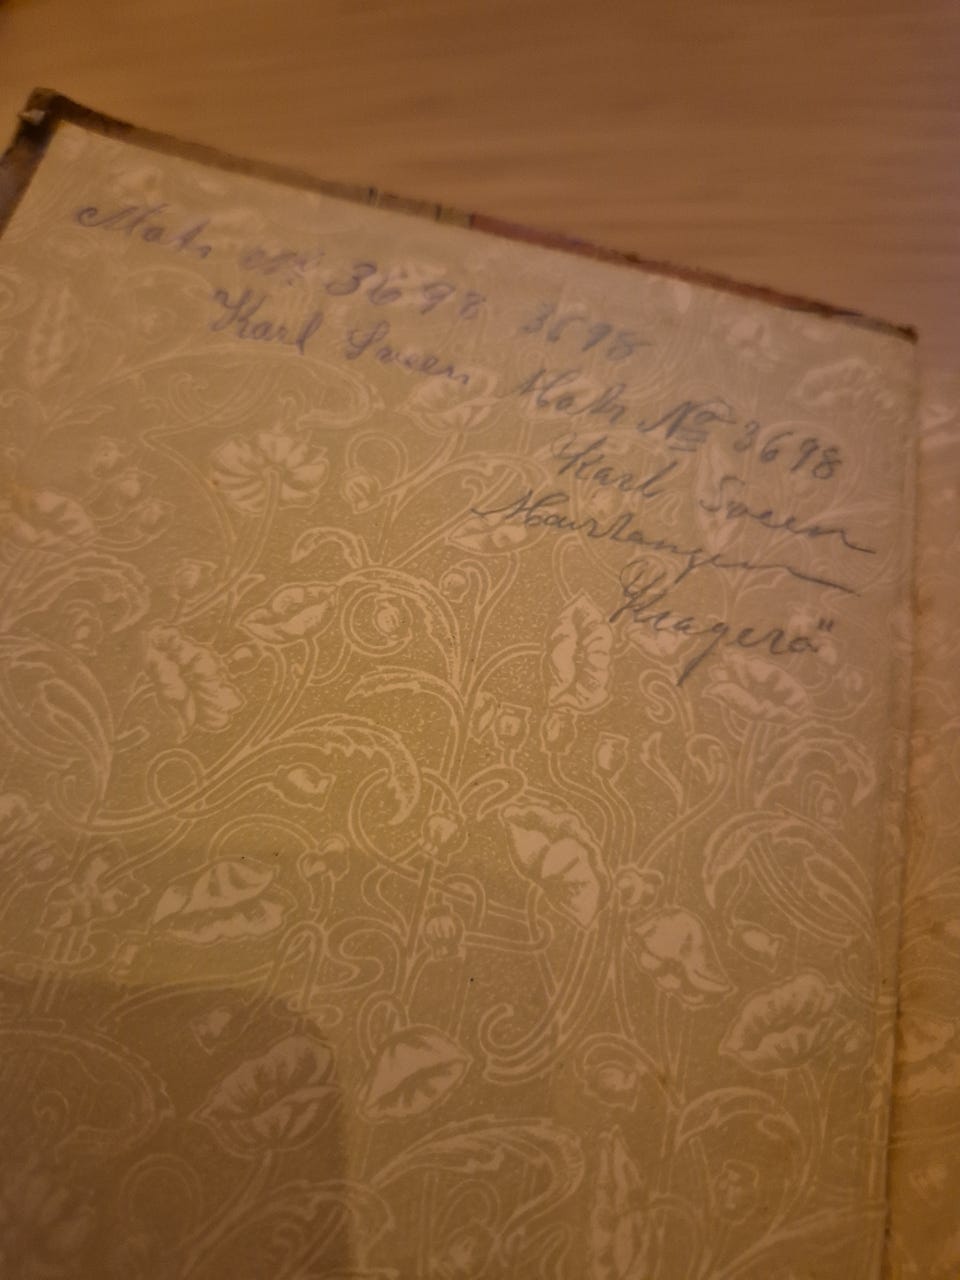 Matr Nº 3698 3698
Karl Sveen
Matr Nº 3698
Karl Sveen
Kragerø"